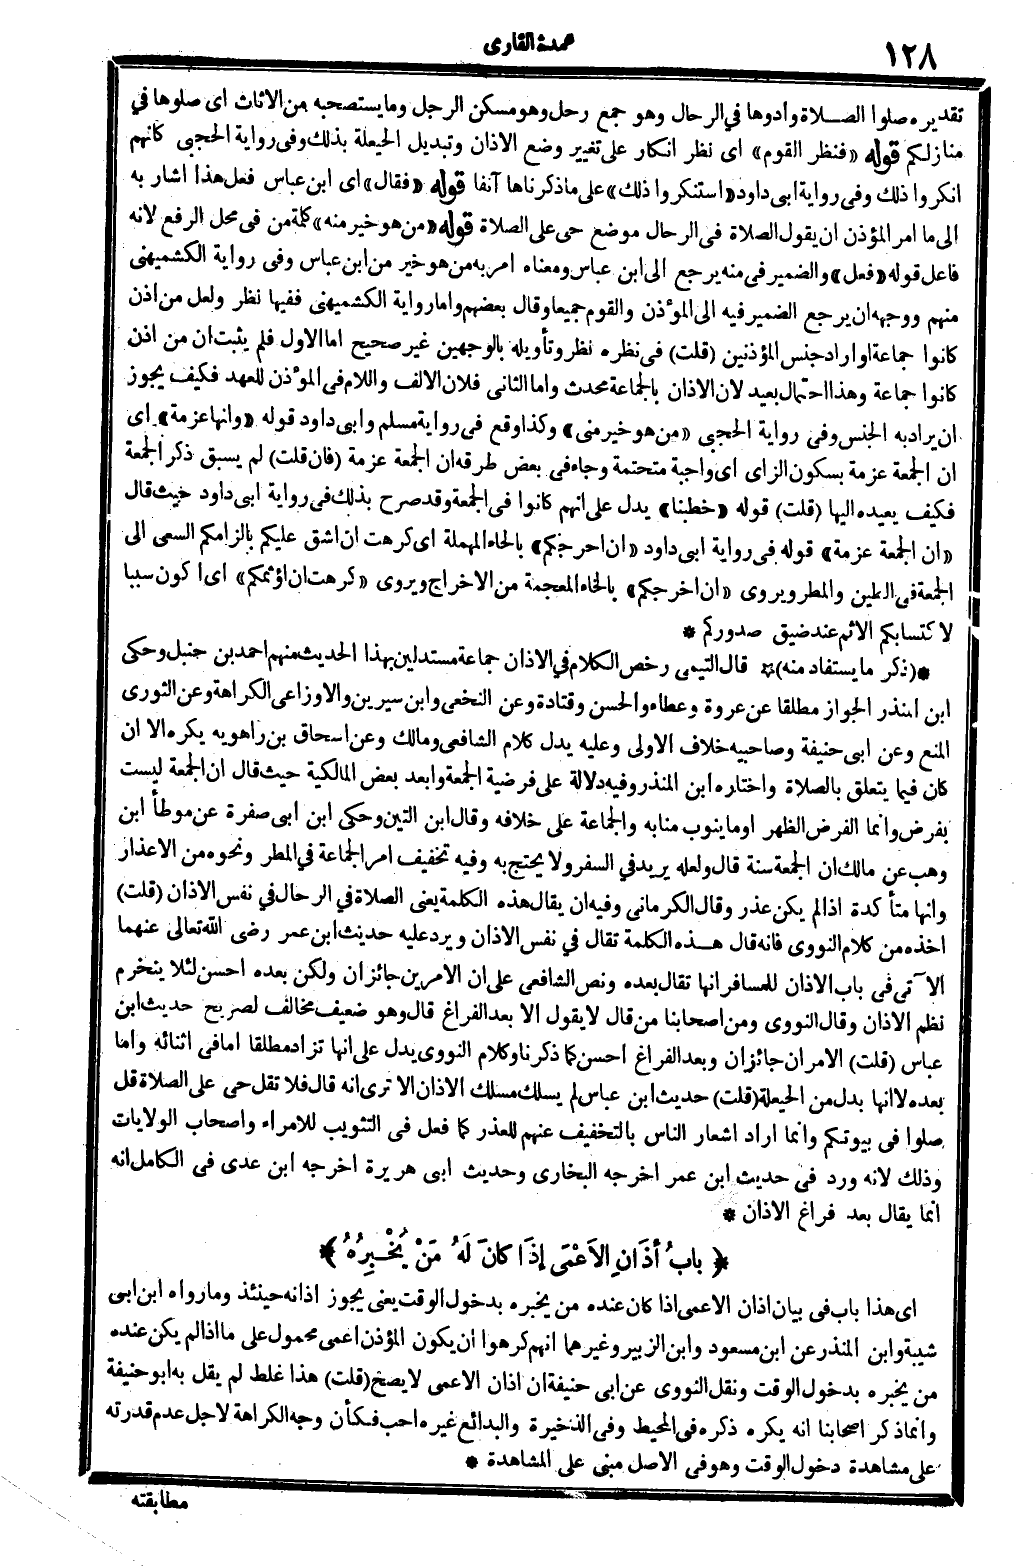 ١٢٨
عمدة القارى
تقديره صلوا الصلاة وأدوها في الرحال وهو جمع رحل وهو مسكن الرجل وما يستصحبه من الاثاث اى صلوها في
منازلكم قوله «فنظر القوم» اى نظر انكار على تغيير وضع الاذان وتبديل الحيعلة بذلك وفى رواية الحجبى كانهم
انكروا ذلك وفى رواية ابى داود «استنكروا ذلك» على ما ذكرناها آنفا قوله «فقال» اى ابن عباس فعل هذا اشار به
الى ما امر المؤذن ان يقول الصلاة فى الرحال موضع حى على الصلاة قوله «من هو خير منه» كلمة من فى محل الرفع لانه
فاعل قوله «فعل» والضمير فى منه يرجع الى ابن عباس ومعناه امر به من هو خير من ابن عباس وفى رواية الكشميهنى
منهم ووجهه ان يرجع الضمير فيه الى الموٴذن والقوم جميعا وقال بعضهم واما رواية الكشميهنى ففيها نظر ولعل من اذن
كانوا جماعة او اراد جنس المؤذنين (قلت) فى نظره نظر وتأويله بالوجهين غير صحيح اما الاول فلم يثبت ان من اذن
كانوا جماعة وهذا احتمال بعيد لان الاذان بالجماعة محدث واما الثانى فلان الالف واللام فى الموٴذن للعهد فكيف يجوز
ان يراد به الجنس وفى رواية الحجبى «من هو خير منى» وكذا وقع فى رواية مسلم وابى داود قوله «وانها عزمة» اى
ان الجمعة عزمة بسكون الزاى اى واجبة متحتمة وجاء فى بعض طرقه ان الجمعة عزمة (فان قلت) لم يسبق ذكر الجمعة
فكيف يعيده اليها (قلت) قوله «خطبنا» يدل على انهم كانوا فى الجمعة وقد صرح بذلك فى رواية ابى داود حيث قال
«ان الجمعة عزمة» قوله فى رواية ابى داود «ان احرجكم» بالحاء المهملة اى كرهت ان اشق عليكم بالزامكم السعى الى
الجمعة فى الطين والمطر ويروى «ان اخرجكم» بالخاء المعجمة من الاخراج ويروى «كرهت ان اؤثمكم» اى اكون سببا
لاكتسابكم الاثم عند ضيق صدوركم *
*(ذكر ما يستفاد منه)* قال التيمى رخص الكلام في الاذان جماعة مستدلين بهذا الحديث منهم احمد بن حنبل وحكى
ابن المنذر الجواز مطلقا عن عروة وعطاء والحسن وقتادة وعن النخعى وابن سيرين والاوزاعى الكراهة وعن الثورى
المنع وعن ابى حنيفة وصاحبيه خلاف الاولى وعليه يدل كلام الشافعى ومالك وعن اسحاق بن راهويه يكره الا ان
كان فيما يتعلق بالصلاة واختاره ابن المنذر وفيه دلالة على فرضية الجمعة وابعد بعض المالكية حيث قال ان الجمعة ليست
بفرض وانما الفرض الظهر او ما ينوب منابه والجماعة على خلافه وقال ابن التين وحكى ابن ابى صفرة عن موطأ ابن
وهب عن مالك ان الجمعة سنة قال ولعله يريد في السفر ولا يحتج به وفيه تخفيف امر الجماعة في المطر ونحوه من الاعذار
وانها متأكدة اذا لم يكن عذر وقال الكرمانى وفيه ان يقال هذه الكلمة يعنى الصلاة في الرحال في نفس الاذان (قلت)
اخذه من كلام النووى فانه قال هذه الكلمة تقال في نفس الاذان ويرد عليه حديث ابن عمر رضى الله تعالى عنهما
الآتى فى باب الاذان للمسافر انها تقال بعده ونص الشافعى على ان الامرين جائزان ولكن بعده احسن لئلا ينخرم
نظم الاذان وقال النووى ومن اصحابنا من قال لا يقول الا بعد الفراغ قال وهو ضعيف مخالف لصريح حديث ابن
عباس (قلت) الامران جائزان وبعد الفراغ احسن كما ذكرنا وكلام النووى يدل على انها تزاد مطلقا اما فى اثنائه واما
بعده لا انها بدل من الحيعلة (قلت) حديث ابن عباس لم يسلك مسلك الاذان الا ترى انه قال فلا تقل حى على الصلاة قل
صلوا فى بيوتكم وانما اراد اشعار الناس بالتخفيف عنهم للعذر كما فعل فى التثويب للامراء واصحاب الولايات
وذلك لانه ورد فى حديث ابن عمر اخرجه البخارى وحديث ابى هريرة اخرجه ابن عدى فى الكامل انه
انما يقال بعد فراغ الاذان *
﴿ بابُ أذَانِ الاَعْمَى إذَا كانَ لَهُ مَنْ يُخْبِرُهُ ﴾
اى هذا باب فى بيان اذان الاعمى اذا كان عنده من يخبره بدخول الوقت يعنى يجوز اذانه حينئذ وما رواه ابن ابى
شيبة وابن المنذر عن ابن مسعود وابن الزبير وغيرهما انهم كرهوا ان يكون المؤذن اعمى محمول على ما اذا لم يكن عنده
من يخبره بدخول الوقت ونقل النووى عن ابى حنيفة ان اذان الاعمى لا يصح (قلت) هذا غلط لم يقل به ابو حنيفة
وانما ذكر اصحابنا انه يكره ذكره فى المحيط وفى الذخيرة والبدائع غيره احب فكأن وجه الكراهة لاجل عدم قدرته
على مشاهدة دخول الوقت وهو فى الاصل مبنى على المشاهدة *
مطابقته